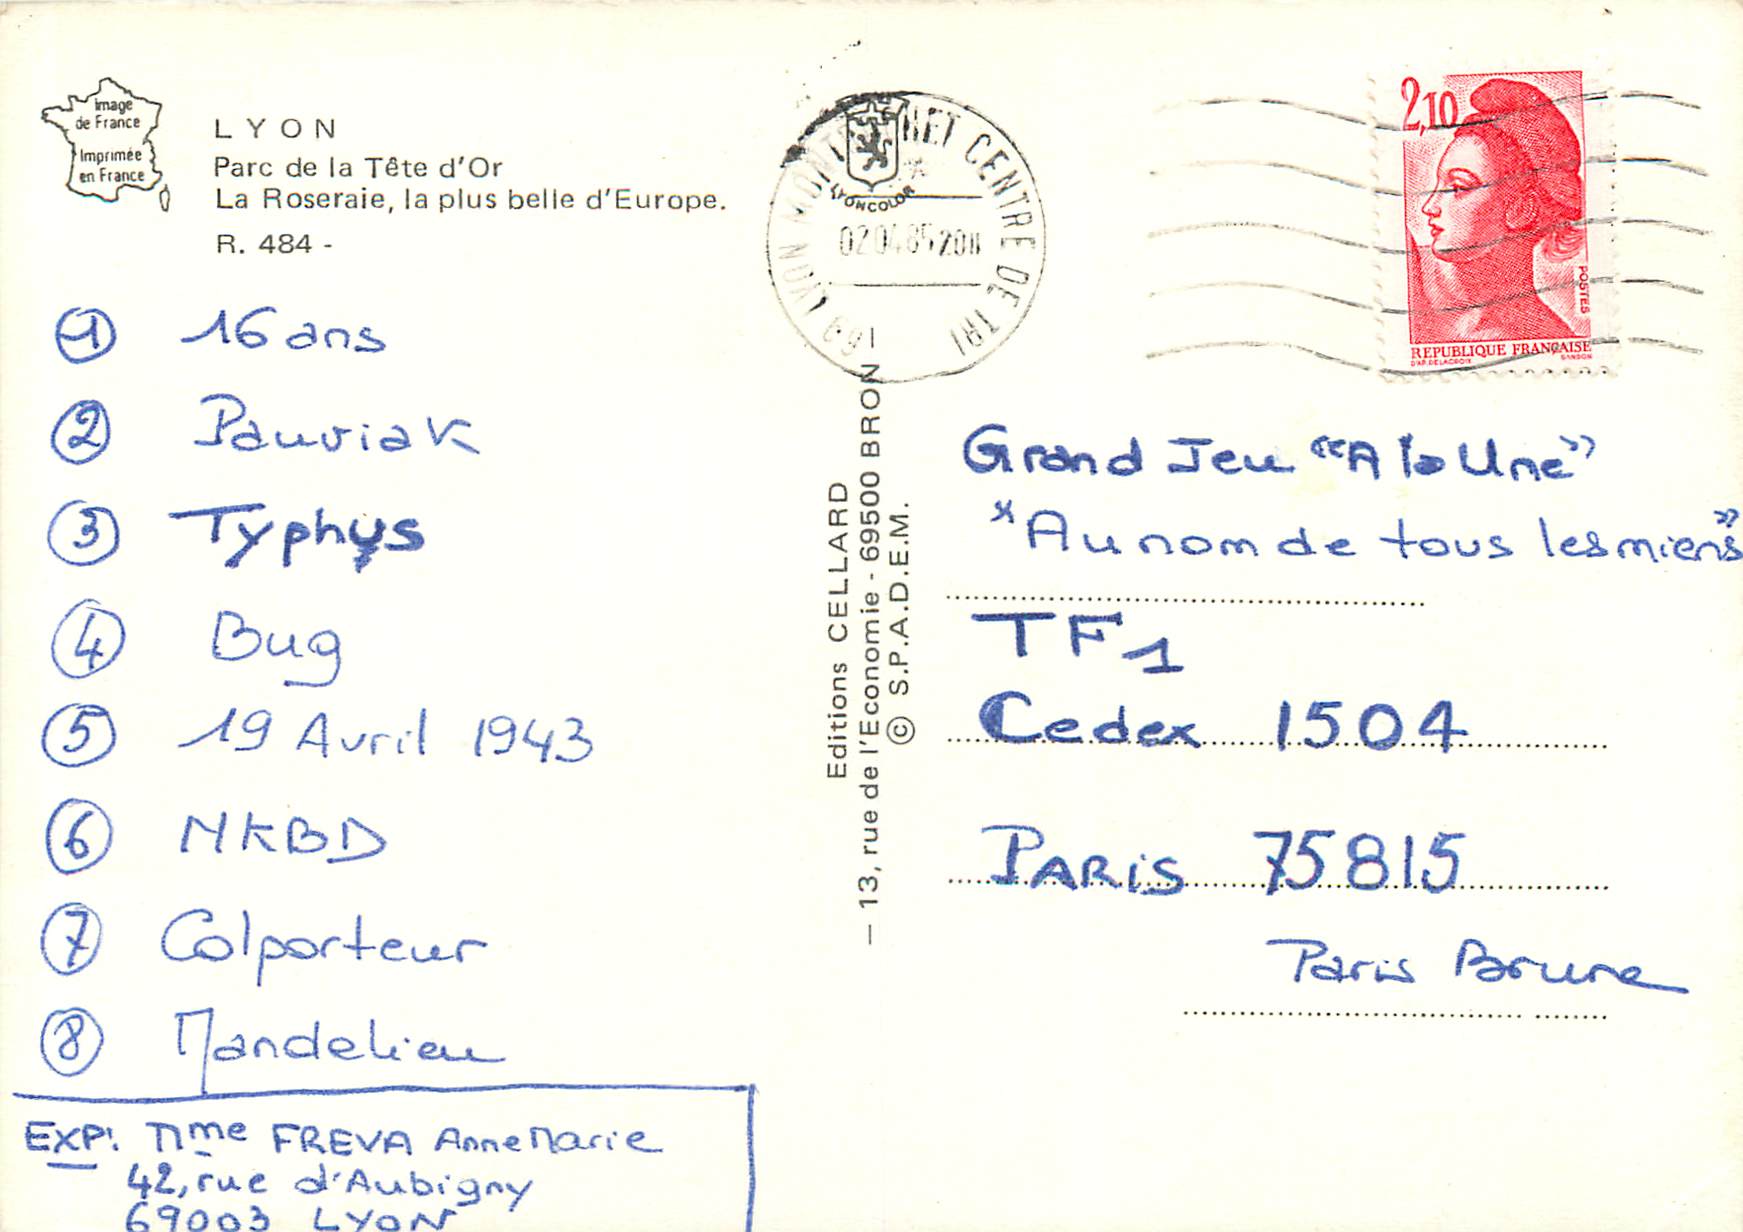 Image
de France
Imprimée
en France
LYON
Parc de la Tête d'Or
La Roseraie, la plus belle d'Europe.
R. 484 -
① 16 ans
② Pauviak
③ Typhus
④ Bug
⑤ 19 Avril 1943
⑥ NKBD
⑦ Colporteur
⑧ Mandelieu
EXP: Mme FREVA Anne Marie
42, rue d'Aubigny
69003 LYON
Editions CELLARD
— 13, rue de l'Economie - 69500 BRON |
© S.P.A.D.E.M.
LYONCOLOR
69 LYON CENTRE DE TRI
2,10
POSTES
REPUBLIQUE FRANÇAISE
D'AP. DELACROIX GANDON
Grand Jeu "A la Une"
"Au nom de tous les miens"
TF1
Cedex 1504
PARIS 75815
Paris Brune